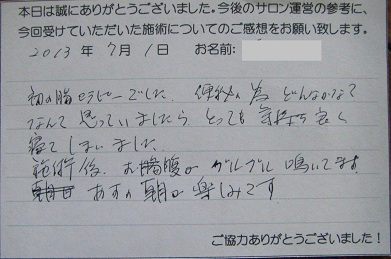 本日は誠にありがとうございました。今後のサロン運営の参考に、
今回受けていただいた施術についてのご感想をお願い致します。
2013 年 7 月 1 日 お名前:
初の腸セラピーでした。便秘の為 どんなかなて
なんて思っていましたら とっても気持ち良く
寝てしまいました
施術後、お腹がグルグル鳴いてます
あすの朝が楽しみです
ご協力ありがとうございました！